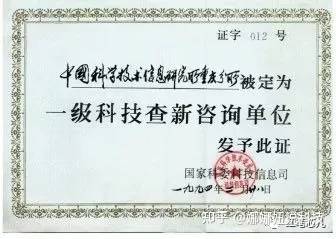 证字 012 号
中国科学技术信息研究所重庆分所被定为
一级科技查新咨询单位
发予此证
国家科委科技信息司
一九九四年 月 日
知乎